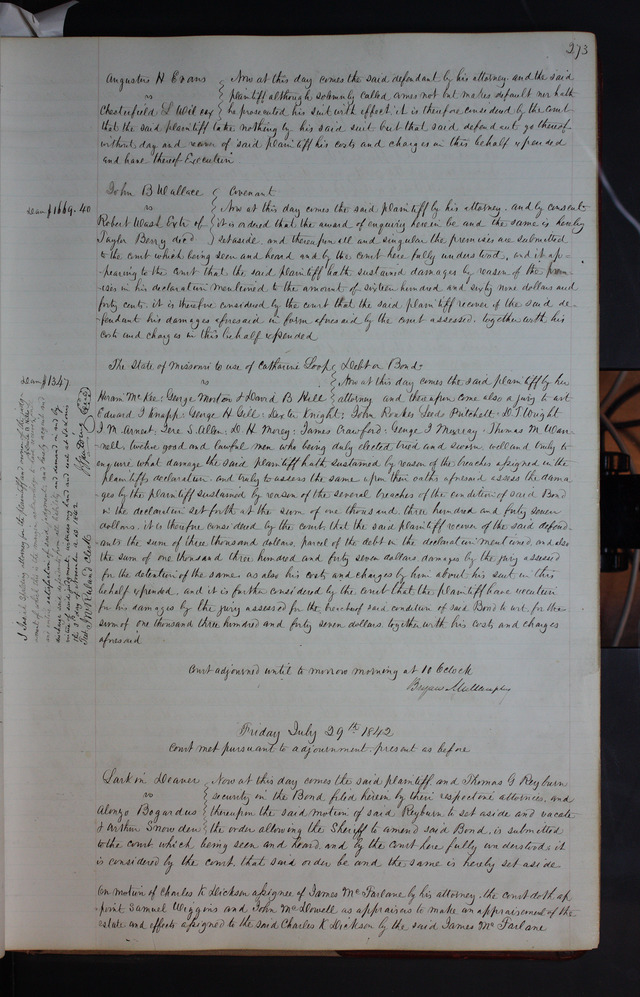 273
Augustus H Evans } Now at this day comes the said defendant by his attorney and the said
vs } plaintiff although solemnly called, comes not but makes default nor hath
Chesterfield S } he prosecuted his suit with effect it is therefore considered by the court
that the said plaintiff take nothing by his said suit but that said defendant go thereof
without day and recover of said plaintiff his costs and charges in this behalf expended
and have thereof Execution
John B Wallace } Covenant
Dam $1669.40
vs } Now at this day comes the said plaintiff by his attorney, and by consent
Robert Wash Extr of } it is ordered that the award of enquiry herein be and the same is hereby
Taylor Berry dec'd } set aside and thereupon all and singular the premises are submitted
to the court which being seen and heard and by the court here fully understood, and it ap-
pearing to the court that the said plaintiff hath sustained damages by reason of the prem-
ises in his declaration mentioned to the amount of sixteen hundred and sixty nine dollars and
forty cents. it is therefore considered by the court that the said plaintiff recover of the said de-
fendant his damages aforesaid in form aforesaid by the court assessed, together with his
costs and charges in this behalf expended
The State of Missouri to use of Catharine Loop } Debt on Bond.
Dam $1347
vs } Now at this day comes the said plaintiff by her
Hiram McKee: George Morton & David B Hill } attorney and thereupon come also a jury to wit
Edward T Knapp: George H Bell: Knight: John Leeds Pritchett: D. T. Wright
I M. Allen: D. H Morey: James Crawford: George T Murray: Thomas M War-
nell, twelve good and lawful men who being duly elected tried and sworn, well and truly to
enquire what damage the said plaintiff hath sustained by reason of the breaches assigned in the
plaintiffs declaration and truly to assess the same upon their oaths aforesaid assess the dama-
ges by the plaintiff sustained by reason of the several breaches of the condition of said Bond
in the declaration set forth at the sum of one thousand three hundred and forty seven
dollars. it is therefore considered by the court that the said plaintiff recover of the said defend-
ants the sum of three thousand dollars, parcel of the debt in the declaration mentioned, and also
the sum of one thousand three hundred and forty seven dollars, damages by the jury assessed
for the detention of the same as also his costs and charges by him about his suit in this
behalf expended. and it is further considered by the court that the plaintiff have execution
for his damages by the jury assessed for the breach of said condition of said Bond to wit. for the
sum of one thousand three hundred and forty seven dollars, together with his costs and charges
aforesaid
Court adjourned until to morrow morning at 10 O'clock
Bryan Mullanphy
Friday July 29th 1842
Court met pursuant to adjournment. present as before
Larkin Deaver } Now at this day comes the said plaintiff and Thomas G Reyburn
vs } security in the Bond filed herein by their respective attornies, and
Alonzo Bogardus } thereupon the said motion of said Reyburn to set aside and vacate
& Arthur Snowden } the order allowing the Sheriff to amend said Bond, is submitted
to the court which being seen and heard and by the court here fully understood, it
is considered by the court that said order be and the same is hereby set aside
On motion of Charles K Dickson assignee of James McParlane by his attorney. the court doth ap
point Samuel Wiggins and John McDowell as appraisers to make an appraisement of the
estate and effects assigned to the said Charles K Dickson by the said James McParlane